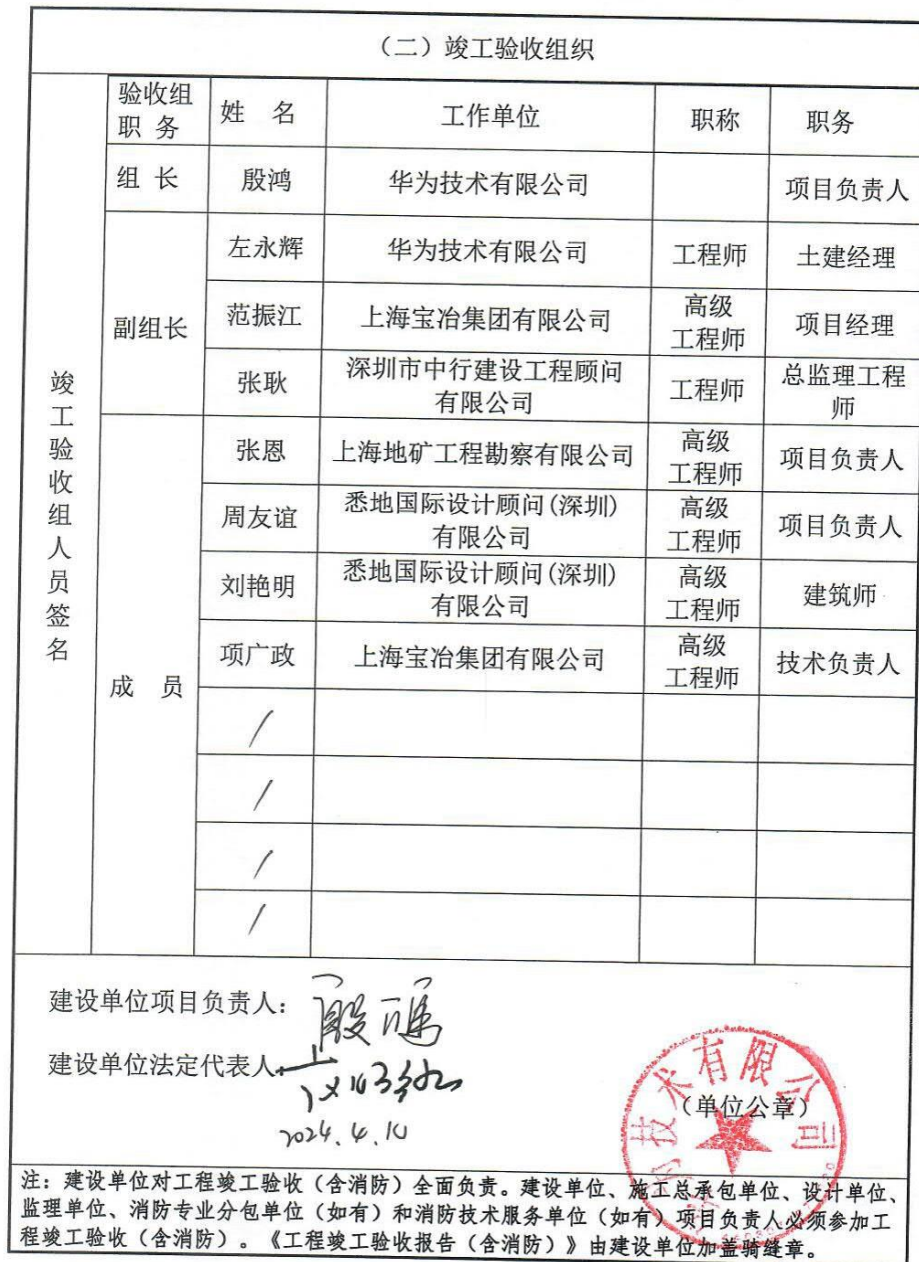 （二）竣工验收组织
竣工验收组人员签名
验收组
职 务
姓 名
工作单位
职称
职务
组 长
殷鸿
华为技术有限公司
项目负责人
副组长
左永辉
华为技术有限公司
工程师
土建经理
范振江
上海宝冶集团有限公司
高级
工程师
项目经理
张耿
深圳市中行建设工程顾问
有限公司
工程师
总监理工程
师
成 员
张恩
上海地矿工程勘察有限公司
高级
工程师
项目负责人
周友谊
悉地国际设计顾问(深圳)
有限公司
高级
工程师
项目负责人
刘艳明
悉地国际设计顾问(深圳)
有限公司
高级
工程师
建筑师
项广政
上海宝冶集团有限公司
高级
工程师
技术负责人
/
/
/
/
建设单位项目负责人：殷鸿
建设单位法定代表人：
2024.4.10
技术有限公司
（单位公章）
注：建设单位对工程竣工验收（含消防）全面负责。建设单位、施工总承包单位、设计单位、
监理单位、消防专业分包单位（如有）和消防技术服务单位（如有）项目负责人必须参加工
程竣工验收（含消防）。《工程竣工验收报告（含消防）》由建设单位加盖骑缝章。